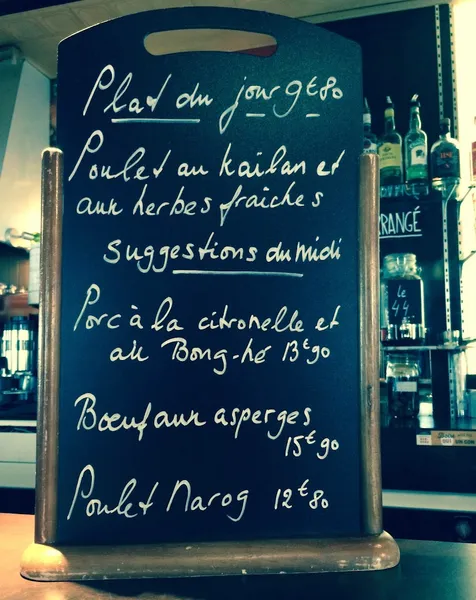 Plat du jour 9€80
Poulet au kaïlan et
aux herbes fraîches
Suggestions du midi
Porc à la citronelle et
au Bong-hé 13€90
Bœuf aux asperges
15€90
Poulet Narog 12€80
RANGÉ
Le
44